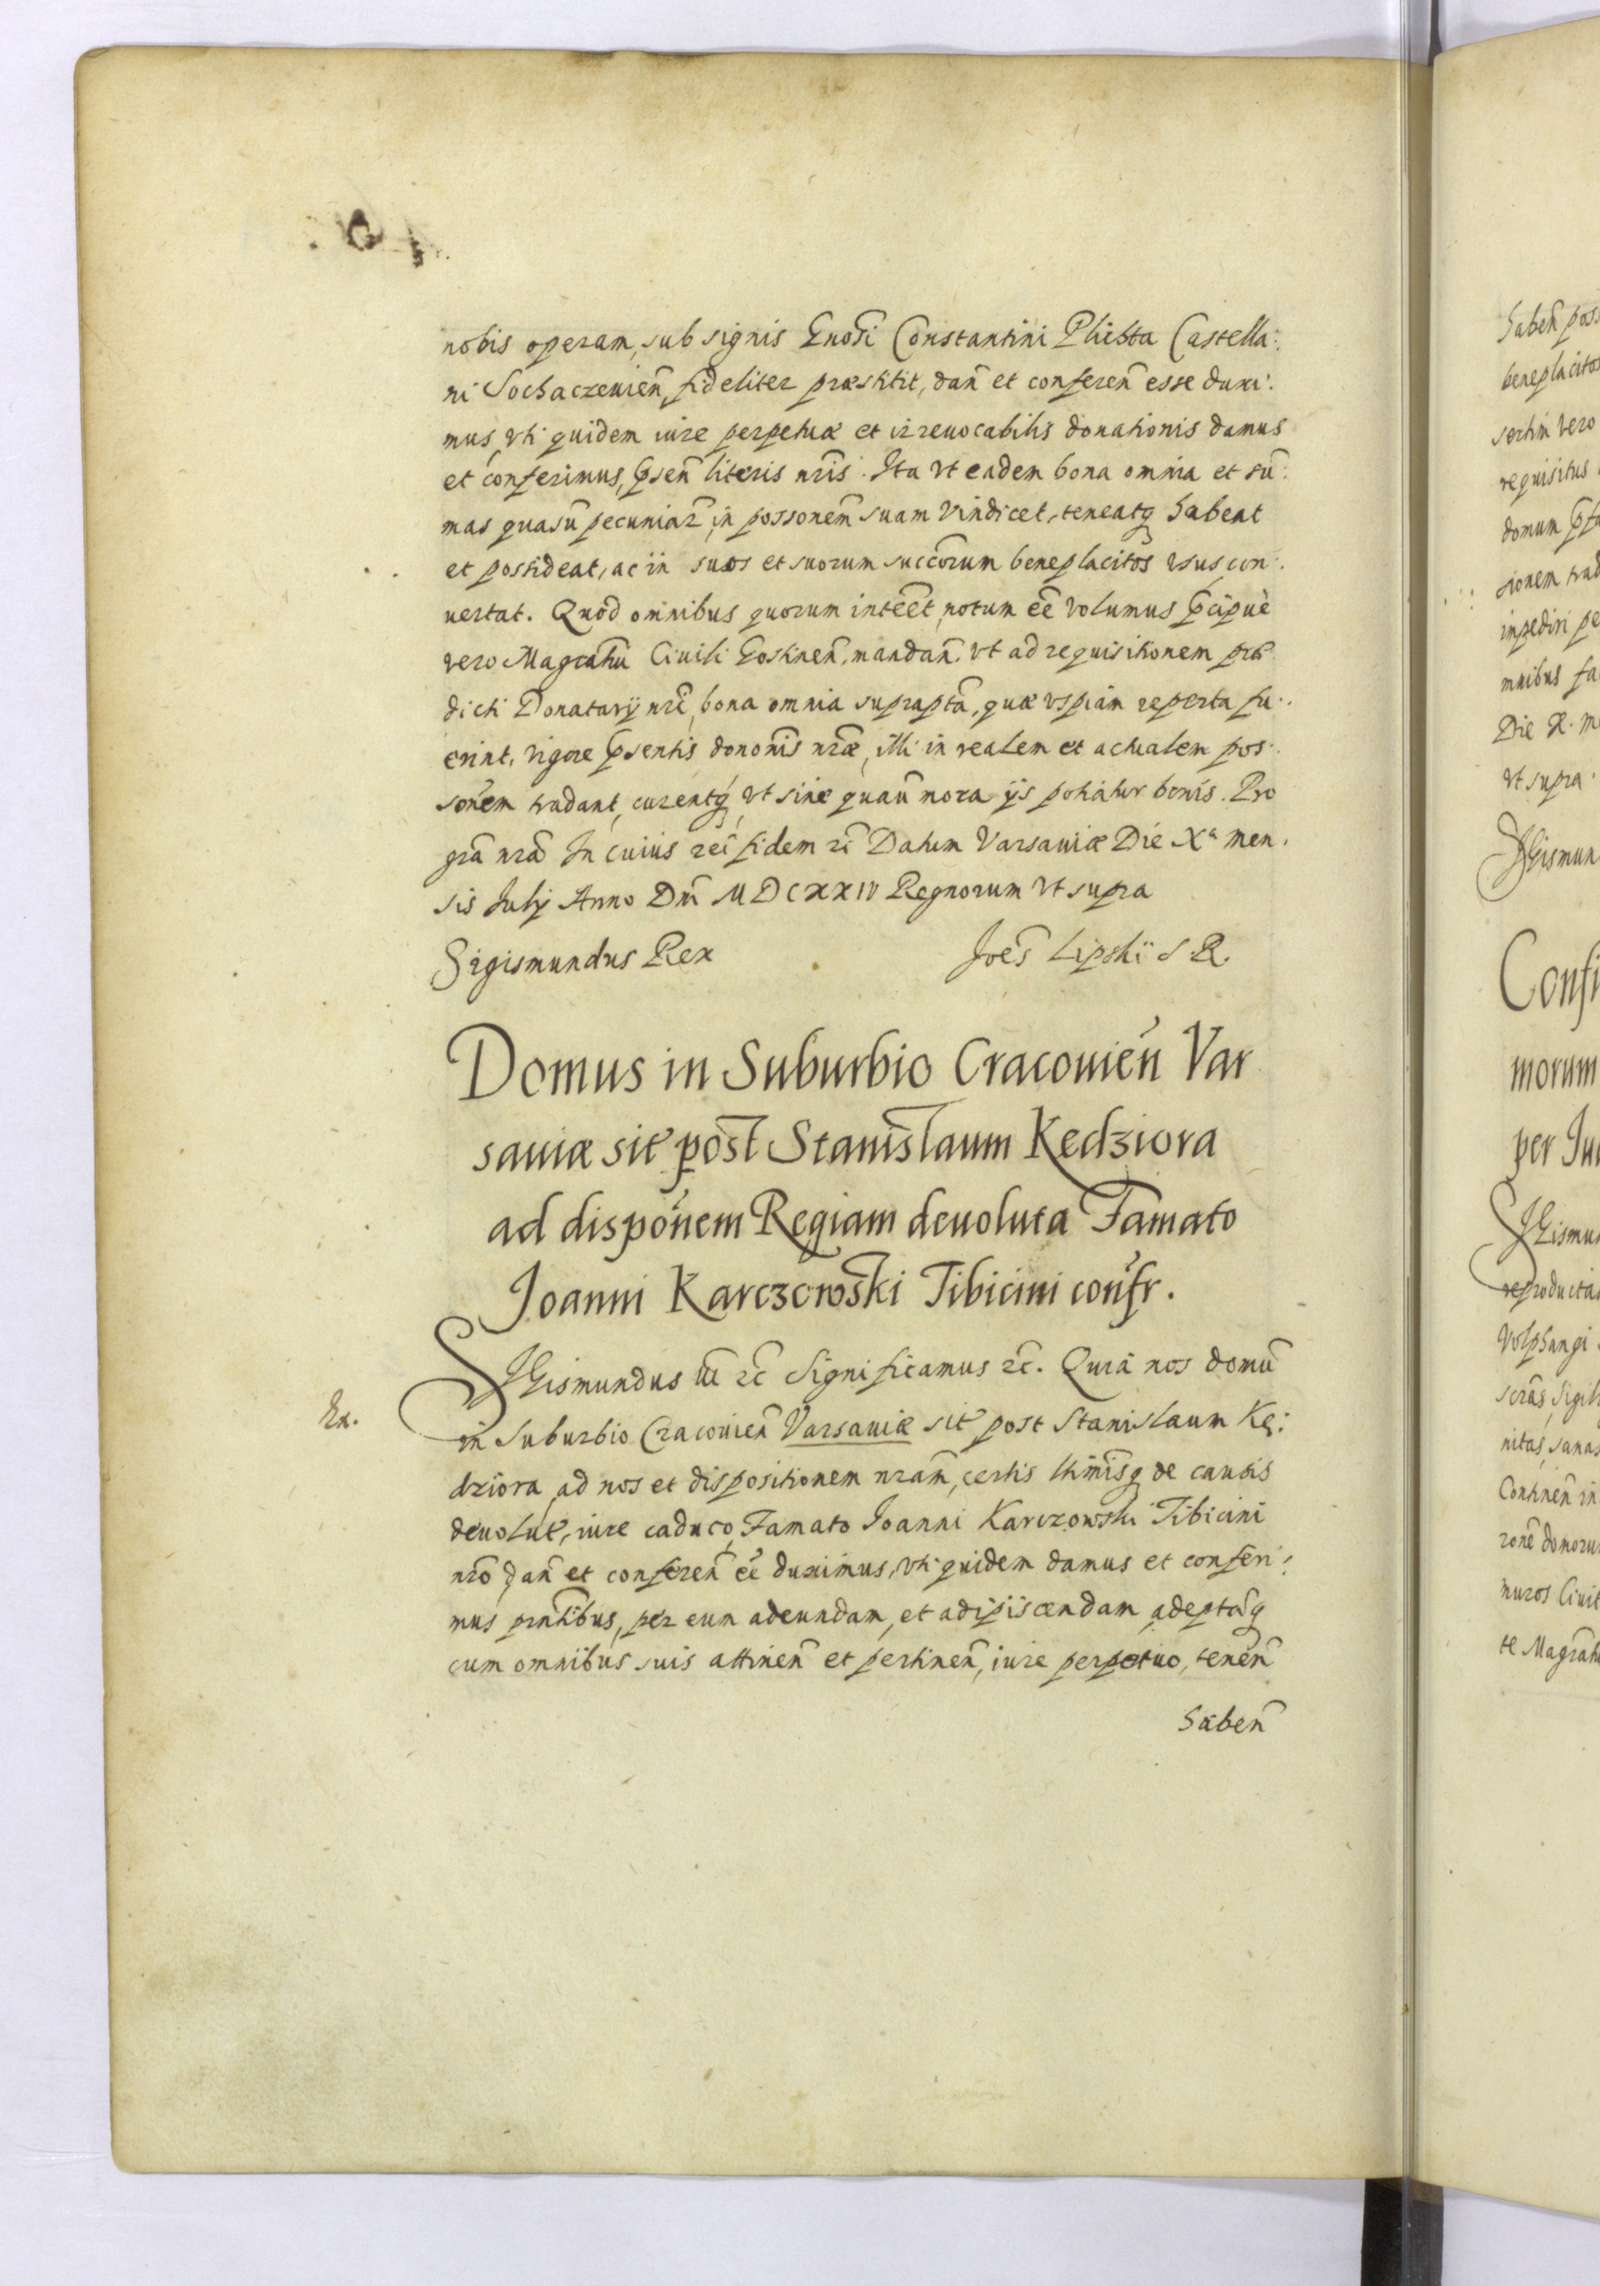 nobis operam, sub signis Gnosi Constantini Plichta Castella:
ni Sochaczeuien̄, fideliter præstitit, dan̄ et conferen̄ esse duxi:
mus, vti quidem iure perpetuæ et irreuocabilis donationis damus
et conferimus, p̄sen̄ literis nr̄is. Ita vt eadem bona omnia et sū:
mas quasū pecuniar̄, in possonem̄ suam vindicet, teneatq; habeat
et possideat, ac in suos et suorum succōrum beneplacitos vsus con:
uertat. Quod omnibus quorum intēēt, notum ēē volumus p̄cipuè
vero Magr̄atui Ciuili Gostinen̄, mandan̄. vt ad requisitionem præ
dicti Donatarij nr̄i, bona omnia suprapta, quæ vspiam reperta fu:
erint, vigore p̄sentis dononis̄ nr̄æ, illi in realem et actualem pos:
sonem̄ tradant, curentq;, vt sine quauī mora ijs potiatur bonis. Pro
gr̄a nr̄a In cuius rei fidem rc̄ Datum Varsauiæ Die Xa men:
sis Julij Anno Dn̄i MDCXXIV Regnorum vt supra
Sigismundus Rex
Joēs Lipski S R.
Domus in Suburbio Cracouien̄ Var
sauiæ sit post Stanislaum Kedziora
ad disponem̄ Regiam deuoluta Famato
Joanni Karczowski Tibicini confr̄.
SIGismundus III rc̄ Significamus rc̄. Quia nos domū
Ex.
in Suburbio Cracouien̄ Varsauiæ sit post Stanislaum Kę:
dziora, ad nos et dispositionem nr̄am, certis ltimisq̄ de causis
deuolut, iure caduco, Famato Joanni Karczowski Tibicini
nr̄o, dan̄ et conferen̄ ēē duximus, vti quidem damus et conferi:
mus pr̄ntibus, per eum adeundam, et adipiscendam adeptāq
cum omnibus suis attinen̄ et pertinen̄, iure perpetuo, tenen̄
haben̄
haben̄ poss
beneplacitos
sertim vero
requisitus
domum
sionem trad
impediri pe
mnibus fa
Die X. m
vt supra.
SIGismun
Confi
morum
per Ju
SIGismun
reproducta
Volphangi
scrās, Sigil
nitas, sanas
Continen̄ in
zone domoru
muros Ciuit
te Magrat